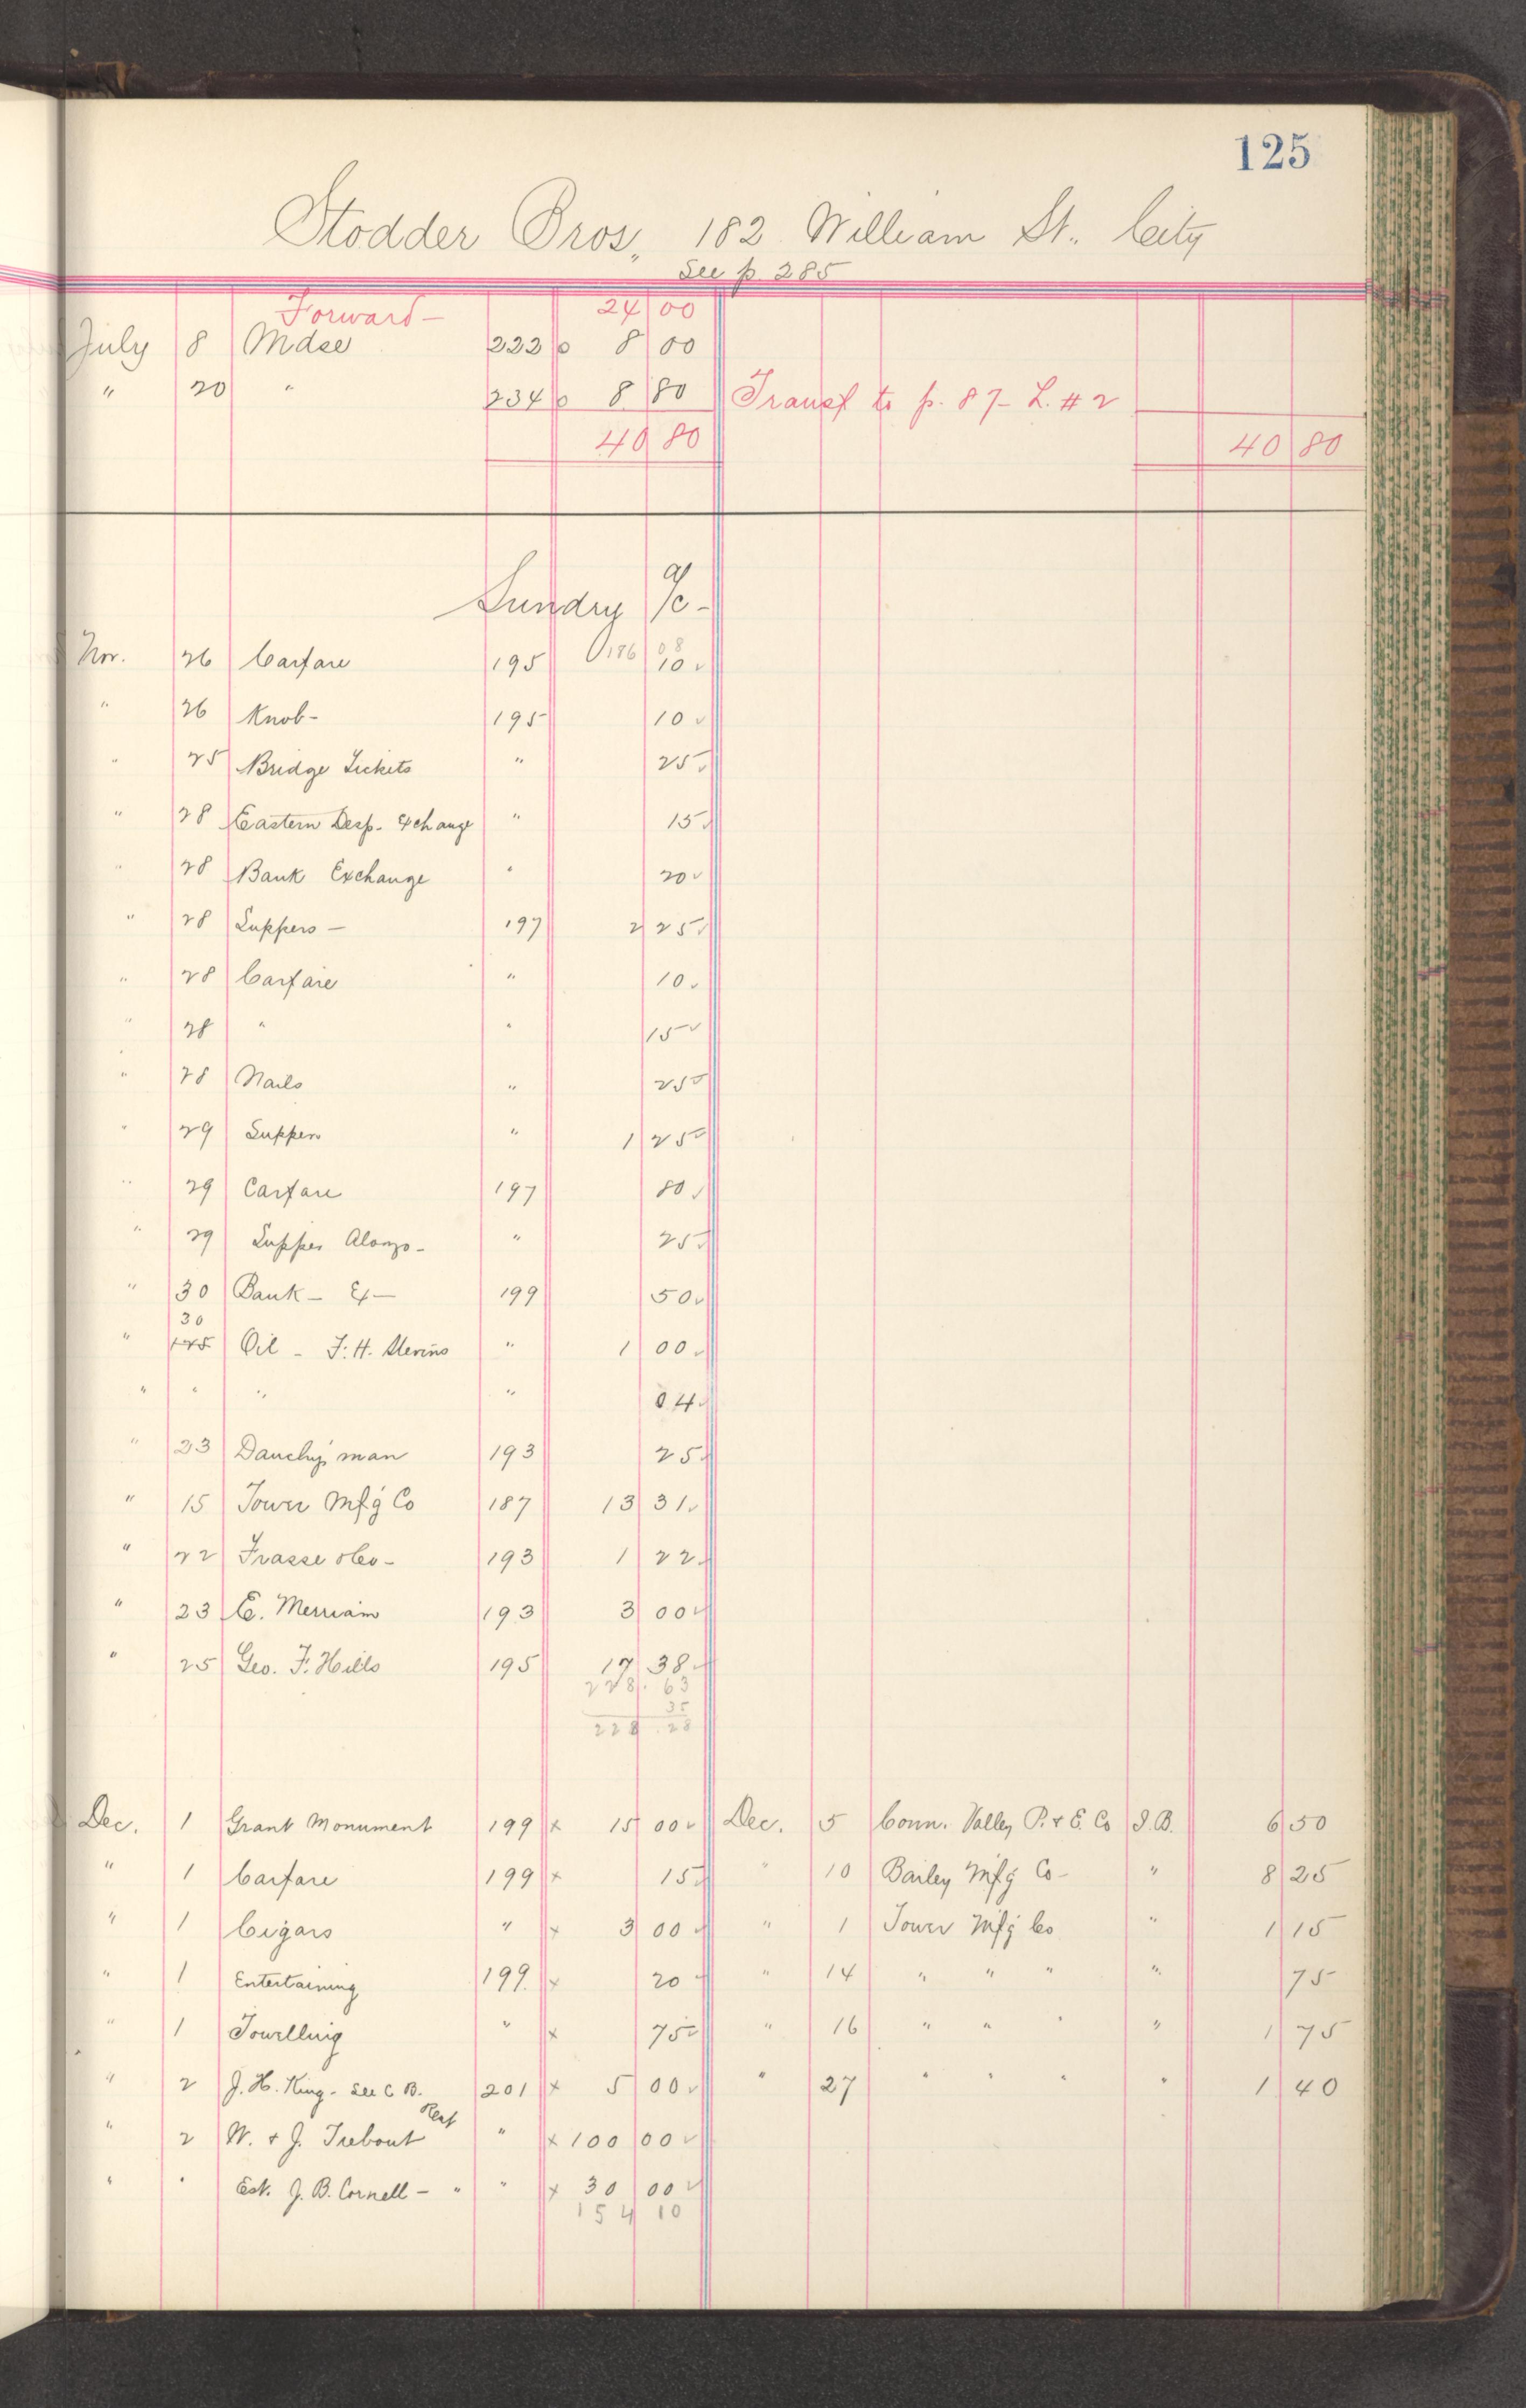 125
Stodder Bros., 182 William St. City
See p. 285
Forward — 24 00
July 8 Mdse 222 o 8 00
" 20 " 234 o 8 80 Transf to p. 87 — L. # 2
40 80 40 80
Sundry a/c —
186 08
Nov. 26 Carfare 195 10 ✓
" 26 Knob — 195 10 ✓
" 25 Bridge Tickets " 25 ✓
" 28 Eastern Desp. Exchange " 15 ✓
" 28 Bank Exchange " 20 ✓
" 28 Suppers — 197 2 25 ✓
" 28 Carfare " 10 ✓
" 28 " " 15 ✓
" 28 Nails " 25 ✓
" 29 Suppers " 1 25 ✓
" 29 Carfare 197 80 ✓
" 29 Supper Alonzo — " 25 ✓
" 30 Bank — Ex — 199 50 ✓
30
" Oil — F. H. " 1 00 ✓
" " " " 04 ✓
" 23 Dauchy's man 193 25 ✓
" 15 Tower Mfg Co 187 13 31 ✓
" 22 Frasse & Co — 193 1 22 ✓
" 23 E. Merriam 193 3 00 ✓
" 25 Geo. F. Hills 195 17 38 ✓
228. 63
35
228 . 28
Dec. 1 Grant Monument 199 x 15 00 ✓ Dec. 5 Conn. Valley P. & E. Co S.B. 6 50
" 1 Carfare 199 x 15 ✓ " 10 Bailey Mfg Co — " 8 25
" 1 Cigars " x 3 00 ✓ " 1 Tower Mfg Co " 1 15
" 1 Entertaining 199 x 20 ✓ " 14 " " " " 75
" 1 Towelling " x 75 ✓ " 16 " " " " 1 75
" 2 J. H. King — See C. B. 201 x 5 00 ✓ " 27 " " " " 1 40
Rent
" 2 W. & J. Trebout " x 100 00 ✓
" " Est. J. B. Cornell — " " x 30 00 ✓
154 10